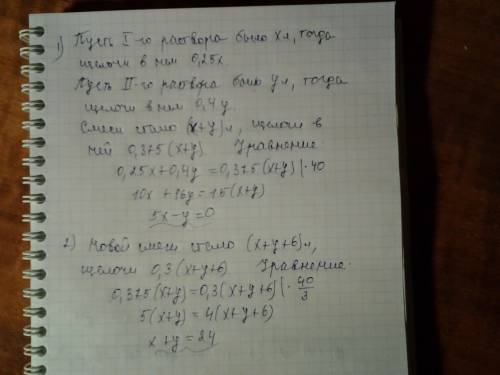 1) Пусть I-го раствора было x л, тогда
щелочи в нем 0,25x.
Пусть II-го раствора было y л, тогда
щелочи в нем 0,4y.
Смеси стало (x+y) л, щелочи в
ней 0,375(x+y). Уравнение:
0,25x+0,4y=0,375(x+y) |·40
10x+16y=15(x+y)
5x-y=0
2) Новой смеси стало (x+y+6) л,
щелочи 0,3(x+y+6) Уравнение:
0,375(x+y)=0,3(x+y+6) |·40/3
5(x+y)=4(x+y+6)
x+y=24